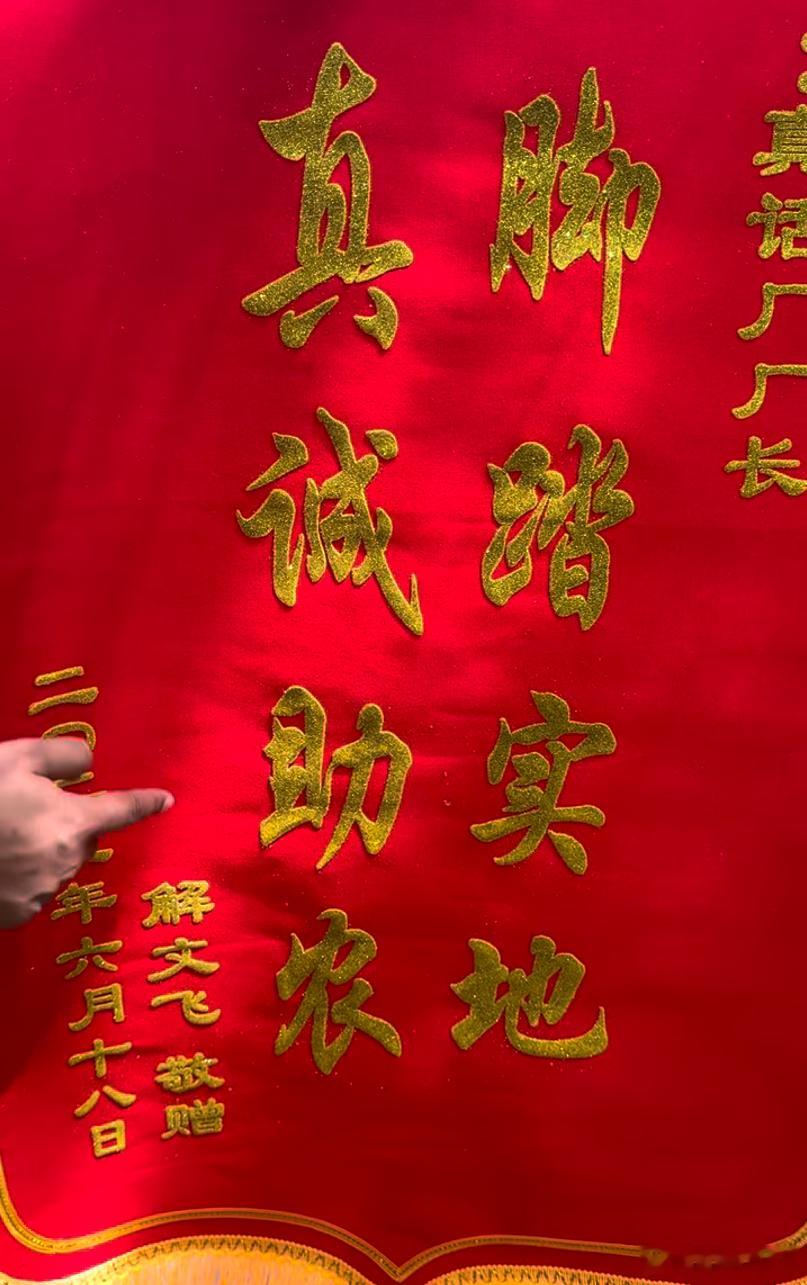 真记厂厂长
脚踏实地
真诚助农
解文飞 敬赠
二〇 年六月十八日